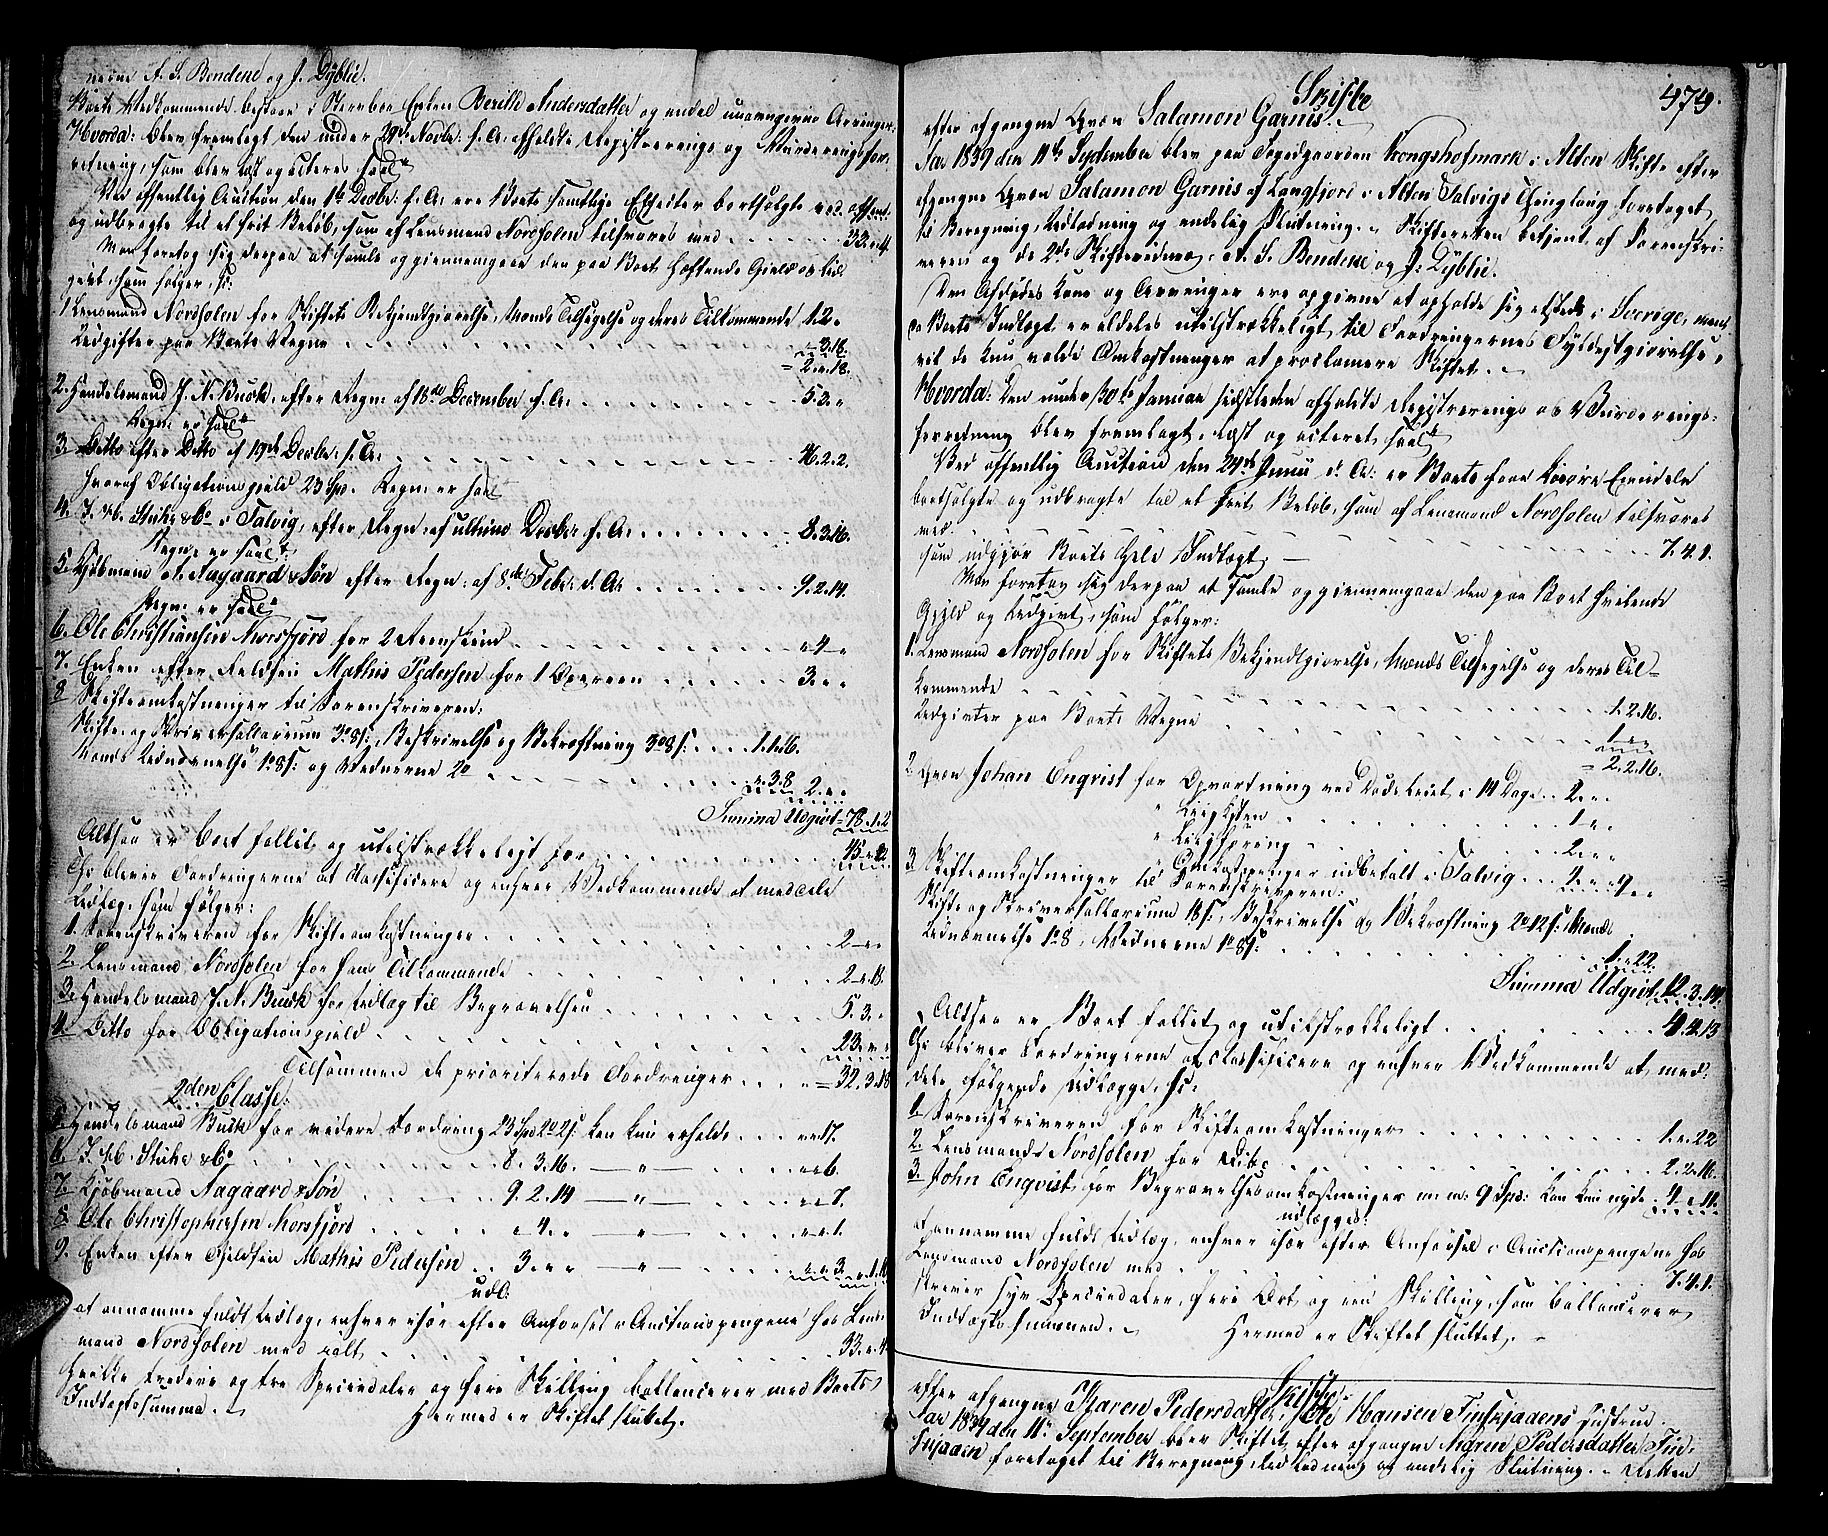 nerne A. S. Bendene og J. Dyblie.
Boets Vedkommende bestaar i Sterboe Enken Berille Andersdatter og endel uangivne Arvinger.
Hvorda: blev fremlagt den under 29de Novbr: f. A. afholdte Registrerings og Vurderingsfor-
retning, som blev læst og acteres saal:
Ved offentlig Auction den 1te Decbr: f. A. ere Boets samtlige Effecter bortsolgte
og udbragte til et frit Beløb, som af Lensmand Nordholen tilsvares med 33. " 4
Man foretog sig derpaa at samle og giennemgaae den paa Boet heftende Gield og Ud-
givt, som følger, s:
1. Lensmand Nordholen for Skiftets Bekjendtgiørelse, Mænds Tilsigelse og deres Tilkommende 1.2.
Udgifter paa Boets Vegne " 3.18.
= 2. " . 18.
2. Handelsmand J. N. Buck, efter Regn: af 18de December f. A. 5.3. "
Regn: er saal:
3. Ditto efter Ditto af 19de Decbr: f. A. 46.2.2.
hvoraf Obligationsgield 23 Spd. Regn: er saal:
4. J. & C. Stuhr & Co i Talvig, efter Regn: af ultimo Decbr: f. A. 8.3.16.
Regn: er saal:
5. Kjøbmand A. Aagaard & Søn efter Regn: af 8de Febr: d. A. 9.2.14.
Regn: er saal:
6. Ole Christiansen Norsfjord for 2 Reenskind " 4 "
7. Enken efter Fieldfin Mathis Pedersen for 1 Oxereen 3. " "
8. Skifteomkostninger til Sorenskriveren:
Skifte- og Skriversallarium 3 o 8 s:, Beskrivelse og Bekræftning 3 o 8 s: 1.1.16.
Mænds Udnævnelse 1 o 8 s: og Vidnerne 2 o " . 3.8 2. " "
Summa Udgivt = 78.1.2
Altsaa er Boet fallit og utilstrækkeligt for 45 " 22
Thi bliver Fordringerne at classificere og enhver Vedkommende at meddele
Udlæg, som følger:
1. Sorenskriveren for Skifteomkostninger 2 " "
2. Lensmand Nordholen for hans Tilkommende 2 " 18.
3. Handelsmand J. N. Buck for Udlæg til Begravelsen 5.3. "
4. Ditto for Obligationsgield 23. " "
Tilsammen de prioriterede Fordringer = 32.3.18
2den Classe:
5. Handelsmand Buck for videre Fordring 23 Spd 2 o 2 s: kan kun erholde " " 17.
6. J. & C. Stuhr & Co 8.3.16. — " — " " 6.
7. Kjøbmand Aagaard & Søn 9.2.14 — " — " " 7.
8. Ole Christophersen Norsfjord " 4. " — " — " " 1.
9. Enken efter Fjeldfin Mathis Pedersen 3. " " — " — " " 3.
udl:
at annamme fuldt Udlæg, enhver især efter Anførsel i Auctionspengene hos Lens-
mand Nordholen med ialt 33. " 4
hvilke tredive og tre Speciedaler og fire Skilling ballancerer med Boets
Indtægtssumma.
Hermed er Skiftet sluttet.
474.
Skifte
efter afgangne Qvæn Salamon Garnis.
Aar 1839 den 11te September blev paa Fogedgaarden Kongshofmark i Alten Skifte efter
afgangne Qvæn Salamon Garnis af Langfjord i Alten Talvigs Thinglaug foretaget
til Beregning, Udlodning og endelig Slutning. Skifteretten betjent af Sorenskri-
veren og de 2de Skiftevidner A. S. Bendene og J: Dyblie.
Den Afdødes Kone og Arvinger ere opgivne at opholde sig etsteds i Sverige, men
da Boets Indtægt er aldeles utilstrækkeligt til Fordringernes Fyldestgiørelse,
vil de kun volde Omkostninger at proclamere Skiftet.
Hvorda: den under 30te Januar sidstleden afholdte Registrerings og Vurderings-
forretning blev fremlagt, læst og acteret saal:
Ved offentlig Auction den 24de Junii d: A: er Boets faa Løsøre Eiendele
bortsolgte og udbragte til et frit Beløb, som af Lensmand Nordholen tilsvares
med 7.4.1.
som udgjør Boets hele Indtægt.
Man foretog sig derpaa at samle og giennemgaae den paa Boet hvilende
Gjeld og Udgivt, som følger:
1. Lensmand Nordholen for Skiftets Bekjendtgiørelse, Mænds Tilsigelse og deres Til-
kommende 1.2.16.
Udgivter paa Boets Vegne 1 " "
= 2.2.16.
2. Qvæn Johan Enqvist for Opvartning ved Dødsleiet i 14 Dage 2. " .
" Liigkisten 1 " "
" Liigføring 2. " "
" Omkostninger udbetalt i Talvig 2. " " 9 " "
3. Skifteomkostninger til Sorenskriveren:
Skifte og Skriversallarium 18 s:, Beskrivelse og Bekræftning 2 o 12 s: Mænds
Udnævnelse 1 o 8, Vidnerne 1 o 8 s: 1. " 22.
Summa Udgivt 12.3.14
Altsaa er Boet fallit og utilstrækkeligt 4.4.13
Thi bliver Fordringerne at classificere og enhver Vedkommende at med-
dele følgende Udlægge, s:
1. Sorenskriveren for Skifteomkostninger 1. " 22
2. Lensmand Nordholen for Dito 2.2.16.
3. John Enqvist for Begravelsesomkostninger m. m: 9 Spd: kan kun nyde 4. " 11.
udlægges:
at annamme fuldt Udlæg, enhver især efter Anførsel i Auctionspengene hos
Lensmand Nordholen med 7.4.1.
skriver syv Speciedaler, fire Ort og een Skilling, som ballancerer
Indtægtssummen. Hermed er Skiftet sluttet.
Skifte
efter afgangne Maren Pedersdatter, Ole Hansen Finskjadens Hustrue.
Aar 1839 den 11te September blev Skiftet efter afgangne Maren Pedersdatter Fin-
skjaden foretaget til Beregning, Udlodning og endelig Slutning. Retten